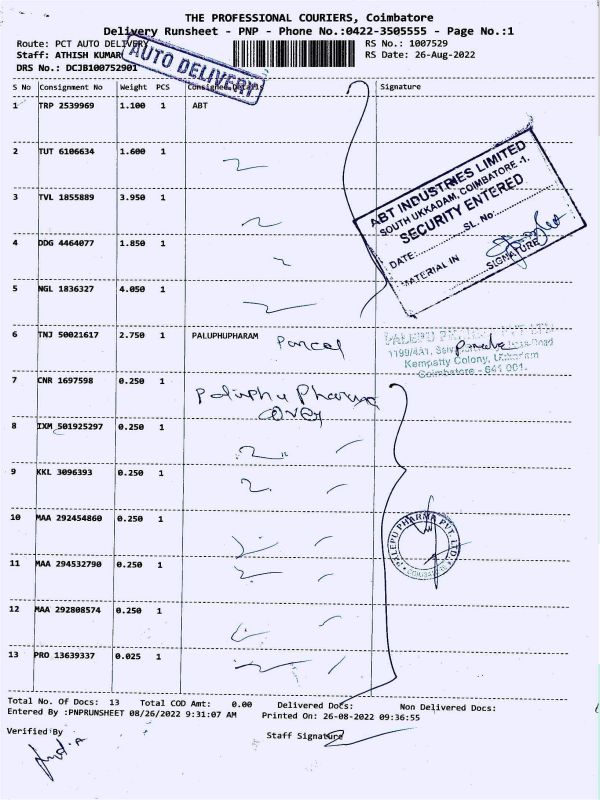 THE PROFESSIONAL COURIERS, Coimbatore
Delivery Runsheet - PNP - Phone No.:0422-3505555 - Page No.:1
Route: PCT AUTO DELIVERY RS No.: 1007529
Staff: ATHISH KUMAR RS Date: 26-Aug-2022
DRS No.: DCJB100752901
AUTO DELIVERY
S No Consignment No Weight PCS Consignee Details Signature
1 TRP 2539969 1.100 1 ABT
2 TUT 6106634 1.600 1
3 TVL 1855889 3.950 1
4 DDG 4464077 1.850 1
5 NGL 1836327 4.050 1
ABT INDUSTRIES LIMITED
SOUTH UKKADAM, COIMBATORE -1.
SECURITY ENTERED
DATE: SL. No:
MATERIAL IN SIGNATURE
6 TNJ 50021617 2.750 1 PALUPHUPHARAM Parcel
PALEPU PVT LTD
1199/4A1, Road
Kempatty Colony, Ukkadam
Coimbatore - 641 001.
7 CNR 1697598 0.250 1 Paluphu Pharma
cover
8 IXM 501925297 0.250 1
9 KKL 3096393 0.250 1
10 MAA 292454860 0.250 1
PALEPU PHARMA PVT. LTD
COIMBATORE
11 MAA 294532790 0.250 1
12 MAA 292808574 0.250 1
13 PRO 13639337 0.025 1
Total No. Of Docs: 13 Total COD Amt: 0.00 Delivered Docs: Non Delivered Docs:
Entered By :PNPRUNSHEET 08/26/2022 9:31:07 AM Printed On: 26-08-2022 09:36:55
Verified By Staff Signature